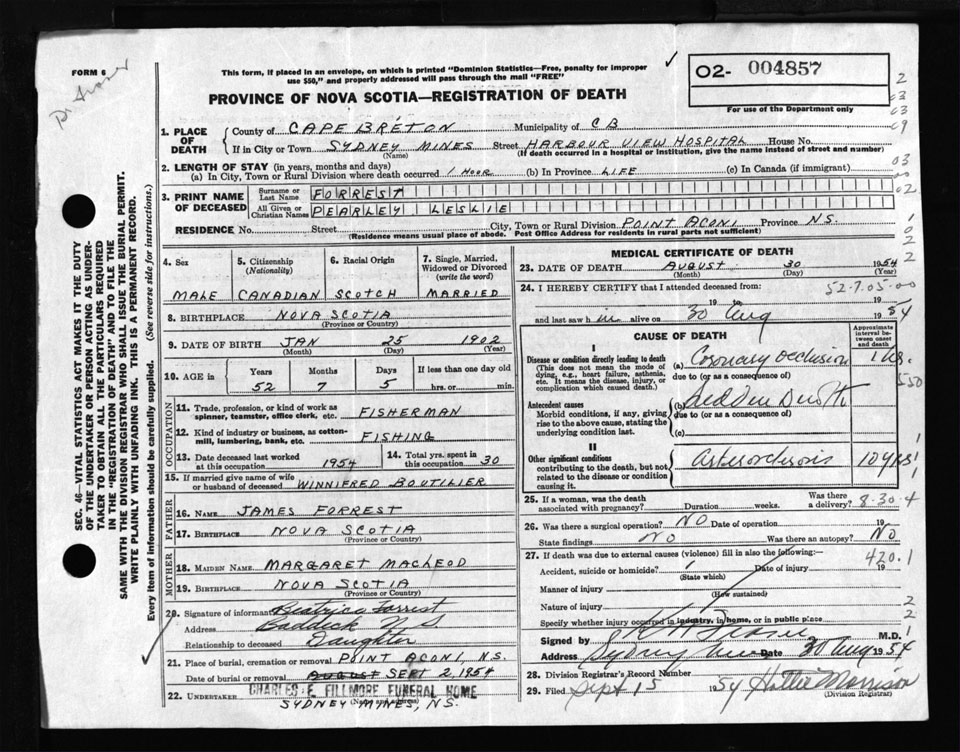 FORM 6
This form, if placed in an envelope, on which is printed "Dominion Statistics—Free, penalty for improper
use $50," and properly addressed will pass through the mail "FREE"
02- 004857
For use of the Department only
PROVINCE OF NOVA SCOTIA—REGISTRATION OF DEATH
SEC. 46—VITAL STATISTICS ACT MAKES IT THE DUTY
OF THE UNDERTAKER OR PERSON ACTING AS UNDER-
TAKER TO OBTAIN ALL THE PARTICULARS REQUIRED
IN THE "REGISTRATION OF DEATH" AND TO FILE THE
SAME WITH THE DIVISION REGISTRAR WHO SHALL ISSUE THE BURIAL PERMIT.
WRITE PLAINLY WITH UNFADING INK. THIS IS A PERMANENT RECORD.
Every item of information should be carefully supplied. (See reverse side for instructions.)
1. PLACE OF DEATH County of CAPE BRETON Municipality of CB
If in City or Town SYDNEY MINES Street HARBOUR VIEW HOSPITAL House No.
(Name) (If death occurred in a hospital or institution, give the name instead of street and number)
2. LENGTH OF STAY (in years, months and days)
(a) In City, Town or Rural Division where death occurred 1 HOUR (b) In Province LIFE (c) In Canada (if immigrant)
3. PRINT NAME OF DECEASED Surname or Last Name FORREST
All Given or Christian Names PEARLEY LESLIE
RESIDENCE No. Street City, Town or Rural Division POINT ACONI Province N.S.
(Residence means usual place of abode. Post Office Address for residents in rural parts not sufficient)
4. Sex 5. Citizenship (Nationality) 6. Racial Origin 7. Single, Married, Widowed or Divorced (write the word)
MALE CANADIAN SCOTCH MARRIED
8. BIRTHPLACE NOVA SCOTIA
(Province or Country)
9. DATE OF BIRTH JAN 25 1902
(Month) (Day) (Year)
10. AGE in Years Months Days If less than one day
52 7 5 hrs. or min.
OCCUPATION
11. Trade, profession, or kind of work as spinner, teamster, office clerk, etc. FISHERMAN
12. Kind of industry or business, as cotton-mill, lumbering, bank, etc. FISHING
13. Date deceased last worked at this occupation 1954 14. Total yrs. spent in this occupation 30
15. If married give name of wife or husband of deceased WINNIFRED BOUTILIER
FATHER
16. NAME JAMES FORREST
17. BIRTHPLACE NOVA SCOTIA
(Province or Country)
MOTHER
18. MAIDEN NAME MARGARET MACLEOD
19. BIRTHPLACE NOVA SCOTIA
(Province or Country)
20. Signature of informant Beatrice Forrest
Address Baddeck N S
Relationship to deceased Daughter
21. Place of burial, cremation or removal POINT ACONI, N.S.
Date of burial or removal AUGUST SEPT 2, 1954
22. UNDERTAKER CHARLES E. FILLMORE FUNERAL HOME
(Name and address)
SYDNEY MINES, N.S.
MEDICAL CERTIFICATE OF DEATH
23. DATE OF DEATH AUGUST 30 1954
(Month) (Day) (Year)
24. I HEREBY CERTIFY that I attended deceased from: 52-7.05-00
19 to 19
and last saw h im alive on 30 Aug 1954
CAUSE OF DEATH
Approximate interval between onset and death
I
Disease or condition directly leading to death
(This does not mean the mode of dying, e.g., heart failure, asthenia, etc. It means the disease, injury, or complication which caused death.)
(a) Coronary Occlusion 1 hr.
due to (or as a consequence of)
Antecedent causes
Morbid conditions, if any, giving rise to the above cause, stating the underlying condition last.
(b)
due to (or as a consequence of)
(c)
II
Other significant conditions
contributing to the death, but not related to the disease or condition causing it.
10 yrs
25. If a woman, was the death associated with pregnancy? Duration weeks. Was there a delivery? 8-30-4
26. Was there a surgical operation? NO Date of operation 19
State findings NO Was there an autopsy? NO
27. If death was due to external causes (violence) fill in also the following: 420.1
Accident, suicide or homicide? Date of injury 19
(State which)
Manner of injury
(How sustained)
Nature of injury
Specify whether injury occurred in industry, in home, or in public place
Signed by M.D.
Address Sydney Mines Date 30 Aug 1954
28. Division Registrar's Record Number
29. Filed Sept 15 1954 Hattie Morrison
(Division Registrar)